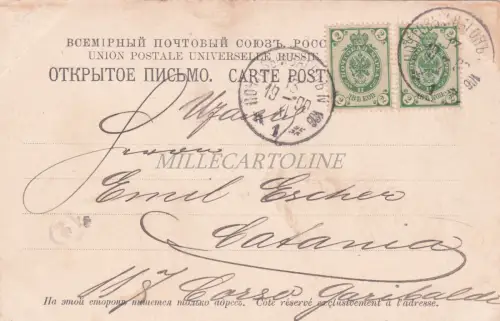 ВСЕМІРНЫЙ ПОЧТОВЫЙ СОЮЗЪ. РОСС
UNION POSTALE UNIVERSELLE. RUSSIE
ОТКРЫТОЕ ПИСЬМО. CARTE POST
MILLECARTOLINE
Herrn
Emil Escher
Catania
117 Corso Garibaldi
На этой сторонѣ пишется только адресъ. Coté réservé exclusivement à l'adresse.